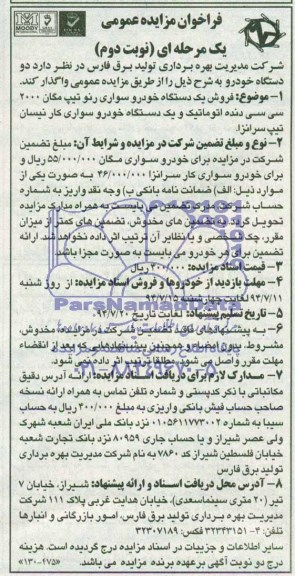 فراخوان مزایده عمومی
یک مرحله ای (نوبت دوم)
MOODY
شرکت مدیریت بهره برداری تولید برق فارس در نظر دارد دو
دستگاه خودرو به شرح ذیل را از طریق مزایده عمومی واگذار کند.
۱- موضوع: فروش یک دستگاه خودرو سواری رنو تیپ مگان ۲۰۰۰
سی سی دنده اتوماتیک و یک دستگاه خودرو سواری کار نیسان
تیپ سرانزا.
۲- نوع و مبلغ تضمین شرکت در مزایده و شرایط آن: مبلغ تضمین
شرکت در مزایده برای خودرو سواری مگان ۵۵/۰۰۰/۰۰۰ ریال و
برای خودرو سواری کار سرانزا ۴۶/۰۰۰/۰۰۰ به صورت یکی از
موارد ذیل: الف) ضمانت نامه بانکی ب) وجه نقد واریز به شماره
حساب شرکت تضمین می بایست به همراه مدارک مزایده
تحویل گردد به تضمین های مخدوش، تضمین های کمتر از میزان
مقرر، چک شخصی و یا نظایر آن ترتیب اثر داده نخواهد شد. ارائه
تضمین برای هر خودرو می بایست به صورت مجزا باشد.
۳- قیمت اسناد مزایده: ۳۰۰/۰۰۰ ریال
۴- مهلت بازدید از خودروها و فروش اسناد مزایده: از روز شنبه
۹۴/۷/۱۱ لغایت چهارشنبه ۹۴/۷/۱۵
۵- تاریخ تسلیم پیشنهاد: لغایت تاریخ ۹۴/۷/۲۰
۶- به پیشنهادهای فاقد تضمین شرکت در مزایده، مخدوش،
مشروط، بدون امضاء و همچنین پیشنهادهایی که بعد از انقضاء
مهلت مقرر واصل می شود، مطلقا ترتیب اثر داده نمی شود.
۷- مدارک لازم برای دریافت اسناد مزایده: ارائه آدرس دقیق
مکاتباتی با ذکر کدپستی و شماره تلفن تماس به همراه ارائه نسخه
صاحب حساب فیش بانکی واریزی به مبلغ ۳۰۰/۰۰۰ ریال به حساب
سیبا به شماره ۰۱۰۵۶۱۱۷۷۳۰۰۲ نزد بانک ملی ایران شعبه شهرک
ولی عصر شیراز و یا حساب جاری ۸۰۹۵۹ نزد بانک تجارت شعبه
خیابان فلسطین شیراز کد ۷۸۶۰ به نام شرکت مدیریت بهره برداری
تولید برق فارس
۸- آدرس محل دریافت اسناد و ارائه پیشنهاد: شیراز، خیابان ۷
تیر (۲۰ متری سینماسعدی)، خیابان هدایت غربی پلاک ۱۱۱ شرکت
مدیریت بهره برداری تولید برق فارس، امور بازرگانی و انبارها
تلفن: ۴-۳۲۳۴۳۱۵۱ فکس ۳۲۳۰۷۱۸۹
سایر اطلاعات و جزییات در اسناد مزایده درج گردیده است. هزینه
درج دو نوبت آگهی برعهده برنده مزایده می باشد. «۱۳۰۰۴۷۵»
ParsNamadData